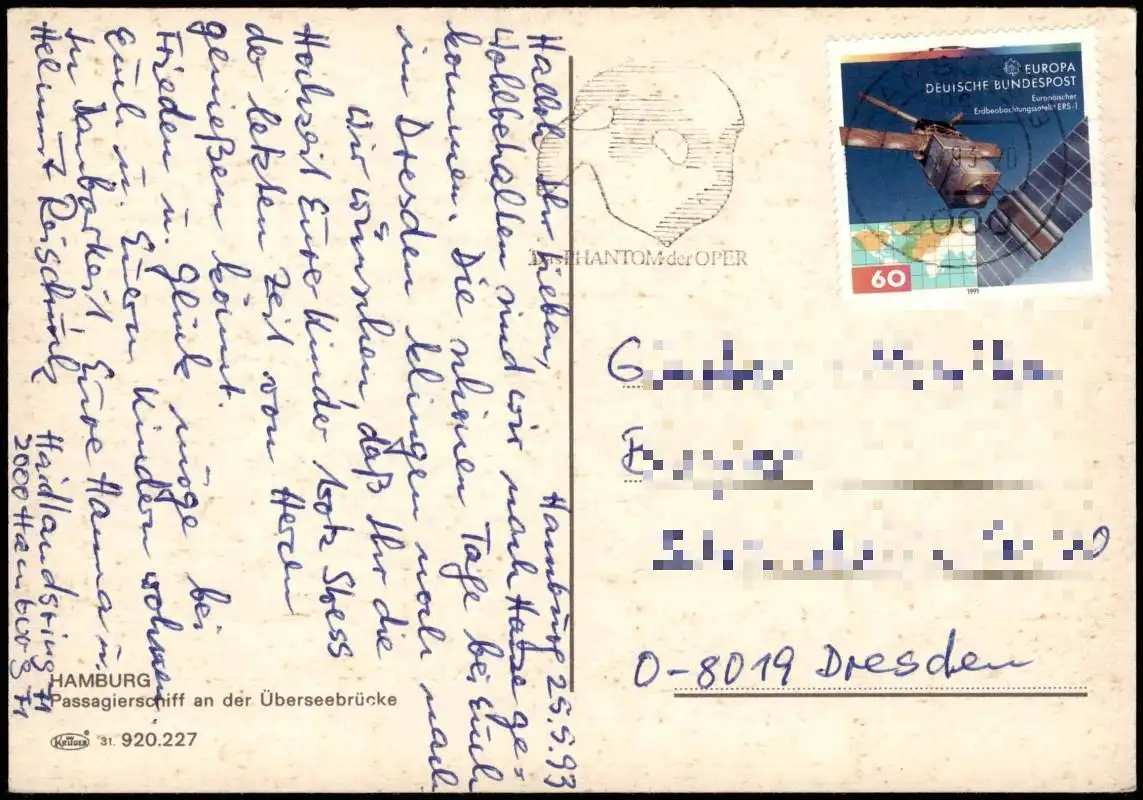 Hamburg 25.5.93
Hallo Ihr Lieben,
Wohlbehalten sind wir nach Hause ge=
kommen. Die schönen Tage bei Euch
in Dresden klingen noch nach
Wir wünschen, daß Ihr die
Hochzeit Eure Kinder trotz Stress
der letzten Zeit von Herzen
genießen könnt.
Frieden u. Glück möge bei
Euch u. Euern Kindern wohnen.
In Dankbarkeit Eure Hanna u.
Helmut
Haidlandsring
2000 Hamburg 71
HAMBURG
Passagierschiff an der Überseebrücke
KRÜGER 31. 920.227
Das PHANTOM der OPER
EUROPA
DEUTSCHE BUNDESPOST
Europäischer
Erdbeobachtungssatellit ERS-1
60
1991
O-8019 Dresden